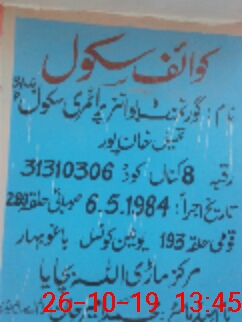 کوائف سکول
نام: گورنمنٹ بوائز پرائمری سکول
تحصیل خان پور
رقبہ 8 کنال کوڈ 31310306
تاریخ اجرا: 6.5.1984 صوبائی حلقہ
قومی حلقہ 193 یونین کونسل باغوبہار
مرکز ماڑی اللہ بچایا
26-10-19 13:45